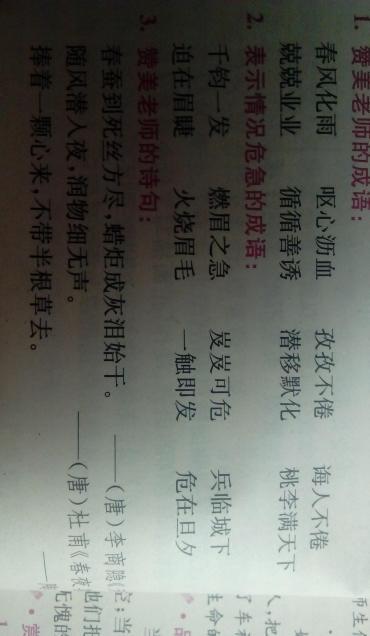 1. 赞美老师的成语：
春风化雨 呕心沥血 孜孜不倦 诲人不倦
兢兢业业 循循善诱 潜移默化 桃李满天下
2. 表示情况危急的成语：
千钧一发 燃眉之急 岌岌可危 兵临城下
迫在眉睫 火烧眉毛 一触即发 危在旦夕
3. 赞美老师的诗句：
春蚕到死丝方尽，蜡炬成灰泪始干。 ——（唐）李商隐
随风潜入夜，润物细无声。 ——（唐）杜甫《春夜
捧着一颗心来，不带半根草去。 ——
师生
人，把
了车祸
生命的
·品
定；当
他们把
无愧的
·赏